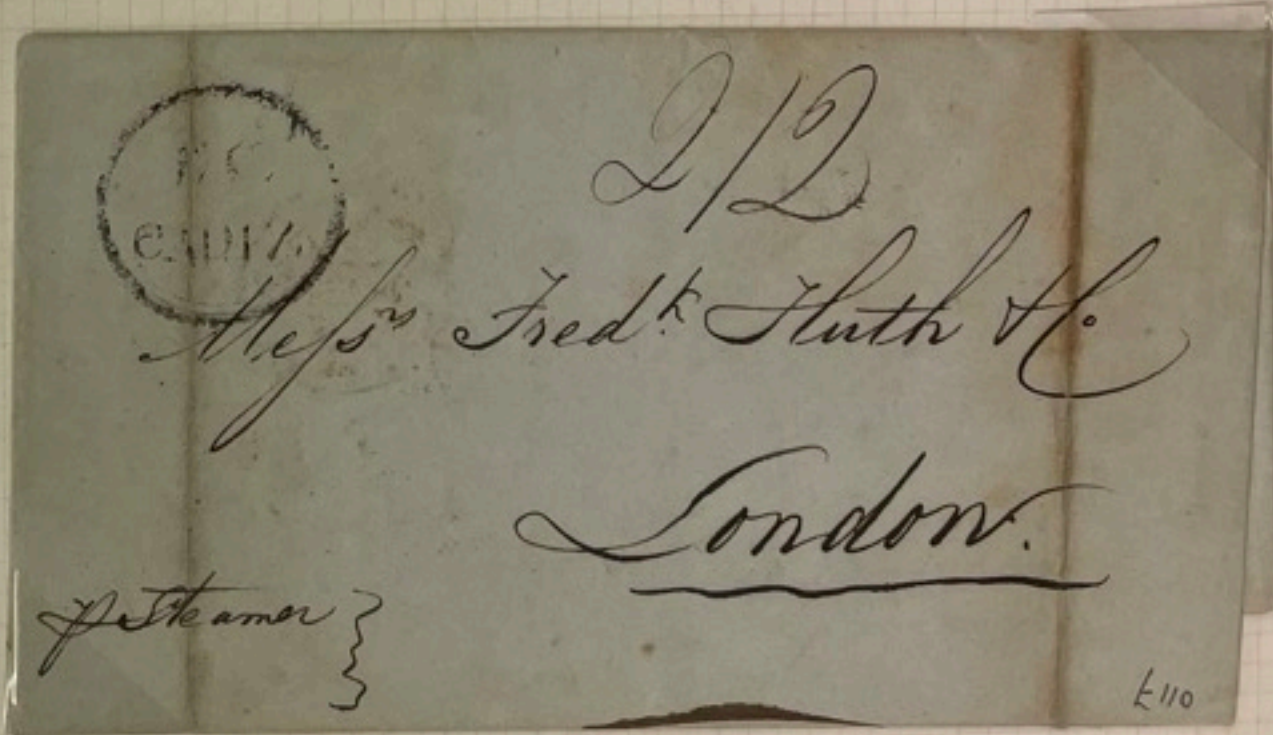 2/2
CADIZ
Messrs Fredk. Huth & Co
London.
p Steamer
£110